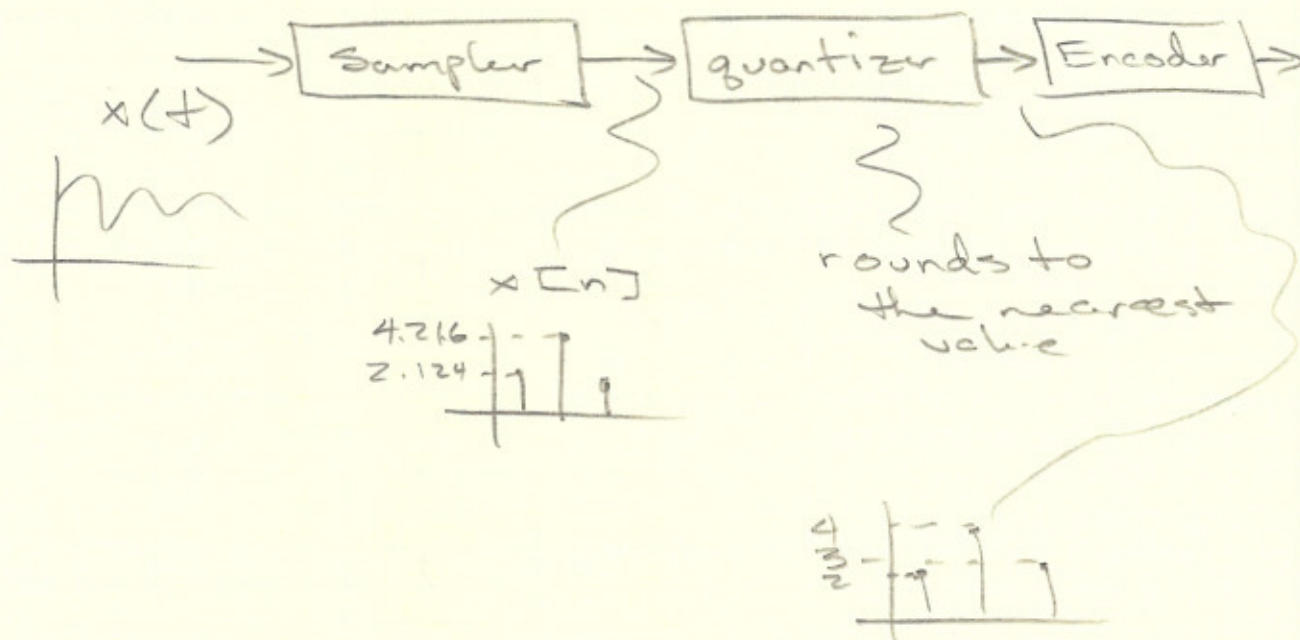 Sampler
quantizer
Encoder
x(t)
x[n]
4.216
2.124
rounds to
the nearest
value
4
3
2